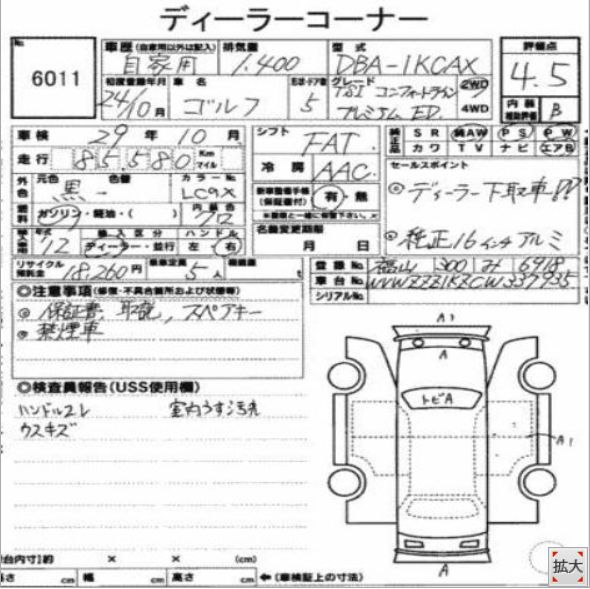 ディーラーコーナー
No. 6011
車歴(自家用以外は記入) 自家用
排気量 1.400
型式 DBA-1KCAX
評価点 4.5
初度登録年月 24年10月
車名 ゴルフ
ドア数 5
グレード TSI コンフォートライン プレミアム ED.
2WD 4WD
内装補助評価 B
車検 29年10月
走行 85580 Km マイル
シフト FAT
冷房 AAC
純正 SR 純AW PS PW
カワ TV ナビ エアB
外色 元色 黒 色替 -
カラーNo. LC9X
内装色 クロ
燃料 ガソリン・軽油・( )
輸入車 年式 '12
輸入区分 ディーラー・並行
ハンドル 左 右
新車整備手帳(保証書付) 有・無
名義変更期限 月 日
セールスポイント
◎ディーラー下取車!!
◎純正16インチアルミ
リサイクル預託金 18,260円
乗車定員 5人
積載量 t
登録No. 福山 300 み 6918
車台No. WVWZZZ1KZCW337935
シリアルNo.
◎注意事項(修復・不具合箇所および状態等)
◎保証書、取説、スペアキー
◎禁煙車
◎検査員報告(USS使用欄)
ハンドルスレ 室内うす汚れ
ウスキズ
A1
A
トビA
A1
A
荷台内寸)約 × × (cm)
長さ cm 幅 cm 高さ cm ←(車検証上の寸法)
拡大